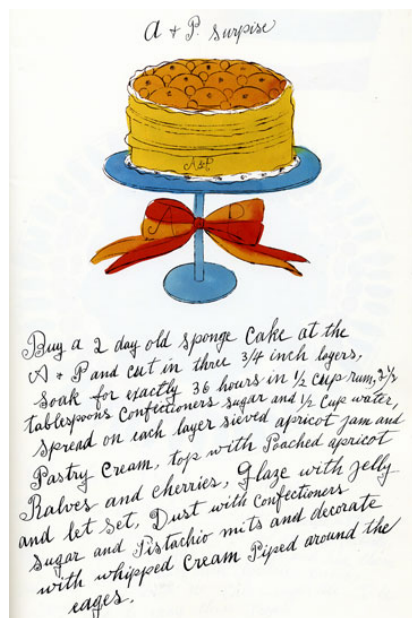 A & P. Surpise
A&P
A P
Buy a 2 day old sponge Cake at the
A & P and cut in three 3/4 inch layers,
soak for exactly 36 hours in 1/2 cup rum, 2 1/2
tablespoons Confectioners sugar and 1/2 Cup water,
spread on each layer sieved apricot jam and
Pastry Cream, top with Poached apricot
Halves and cherries, Glaze with jelly
and let set, Dust with Confectioners
sugar and Pistachio nuts and decorate
with whipped Cream Piped around the
eages.